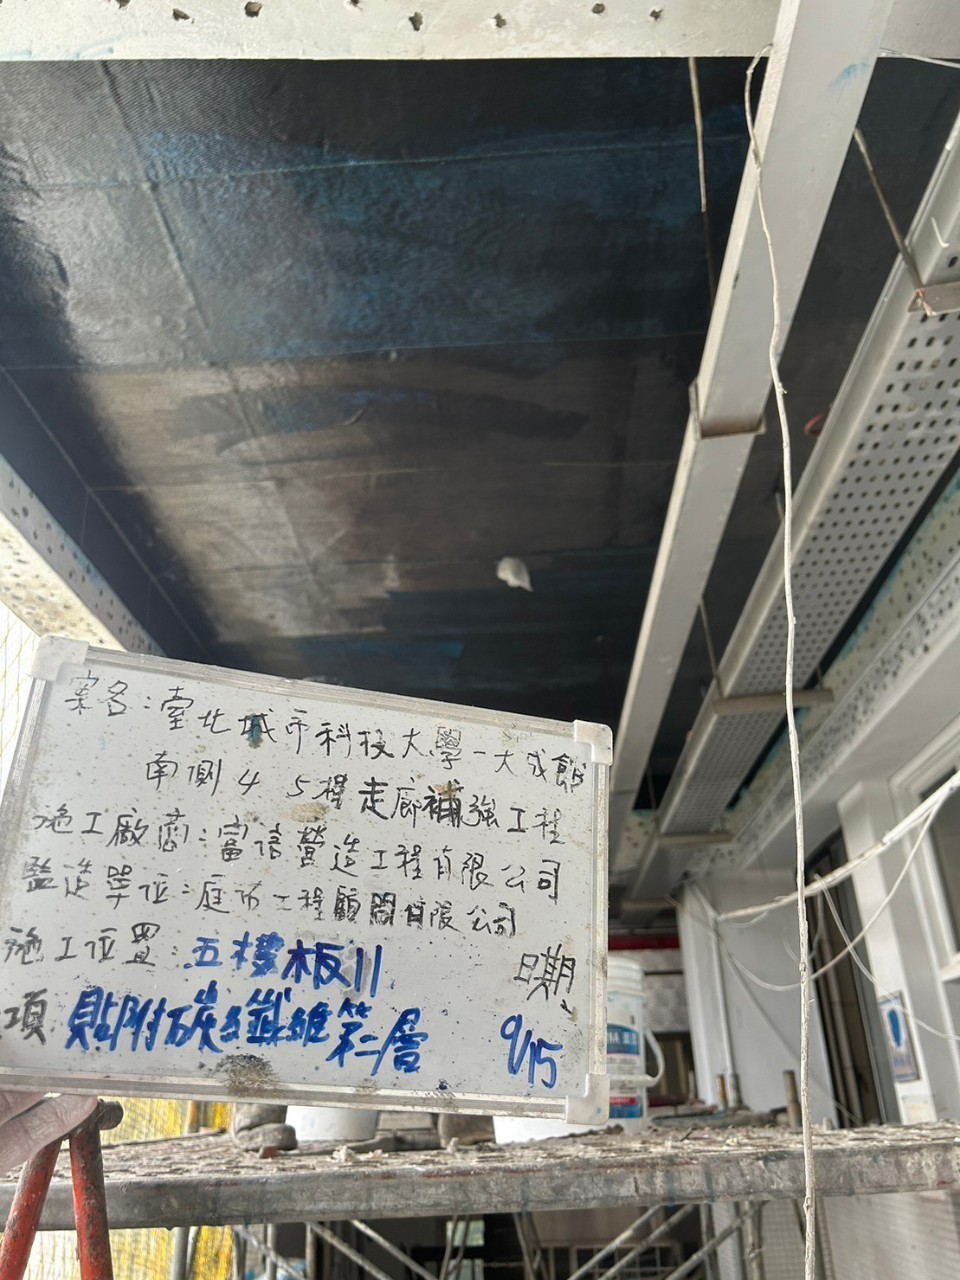 案名：臺北城市科技大學-大成館
南側4 5樓走廊補強工程
施工廠商：富信營造工程有限公司
監造單位：庭功工程顧問有限公司
施工位置：五樓板11
日期、
項 貼附碳纖維第二層 9/15